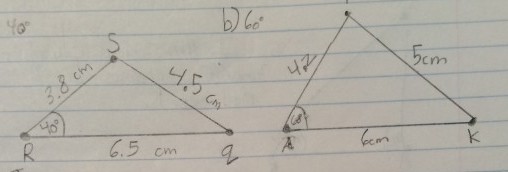 40° b) 60°
S
3.8 cm 4.5 cm 42 5cm
40° 60°
R 6.5 cm q A 6cm K